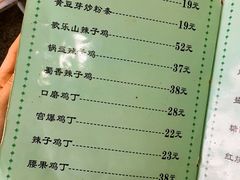 黄豆芽炒粉条 19元
歌乐山辣子鸡 52元
锅巴辣子鸡 37元
蜀香辣子鸡 38元
口磨鸡丁 28元
宫爆鸡丁 22元
辣子鸡丁 23元
腰果鸡丁 38元